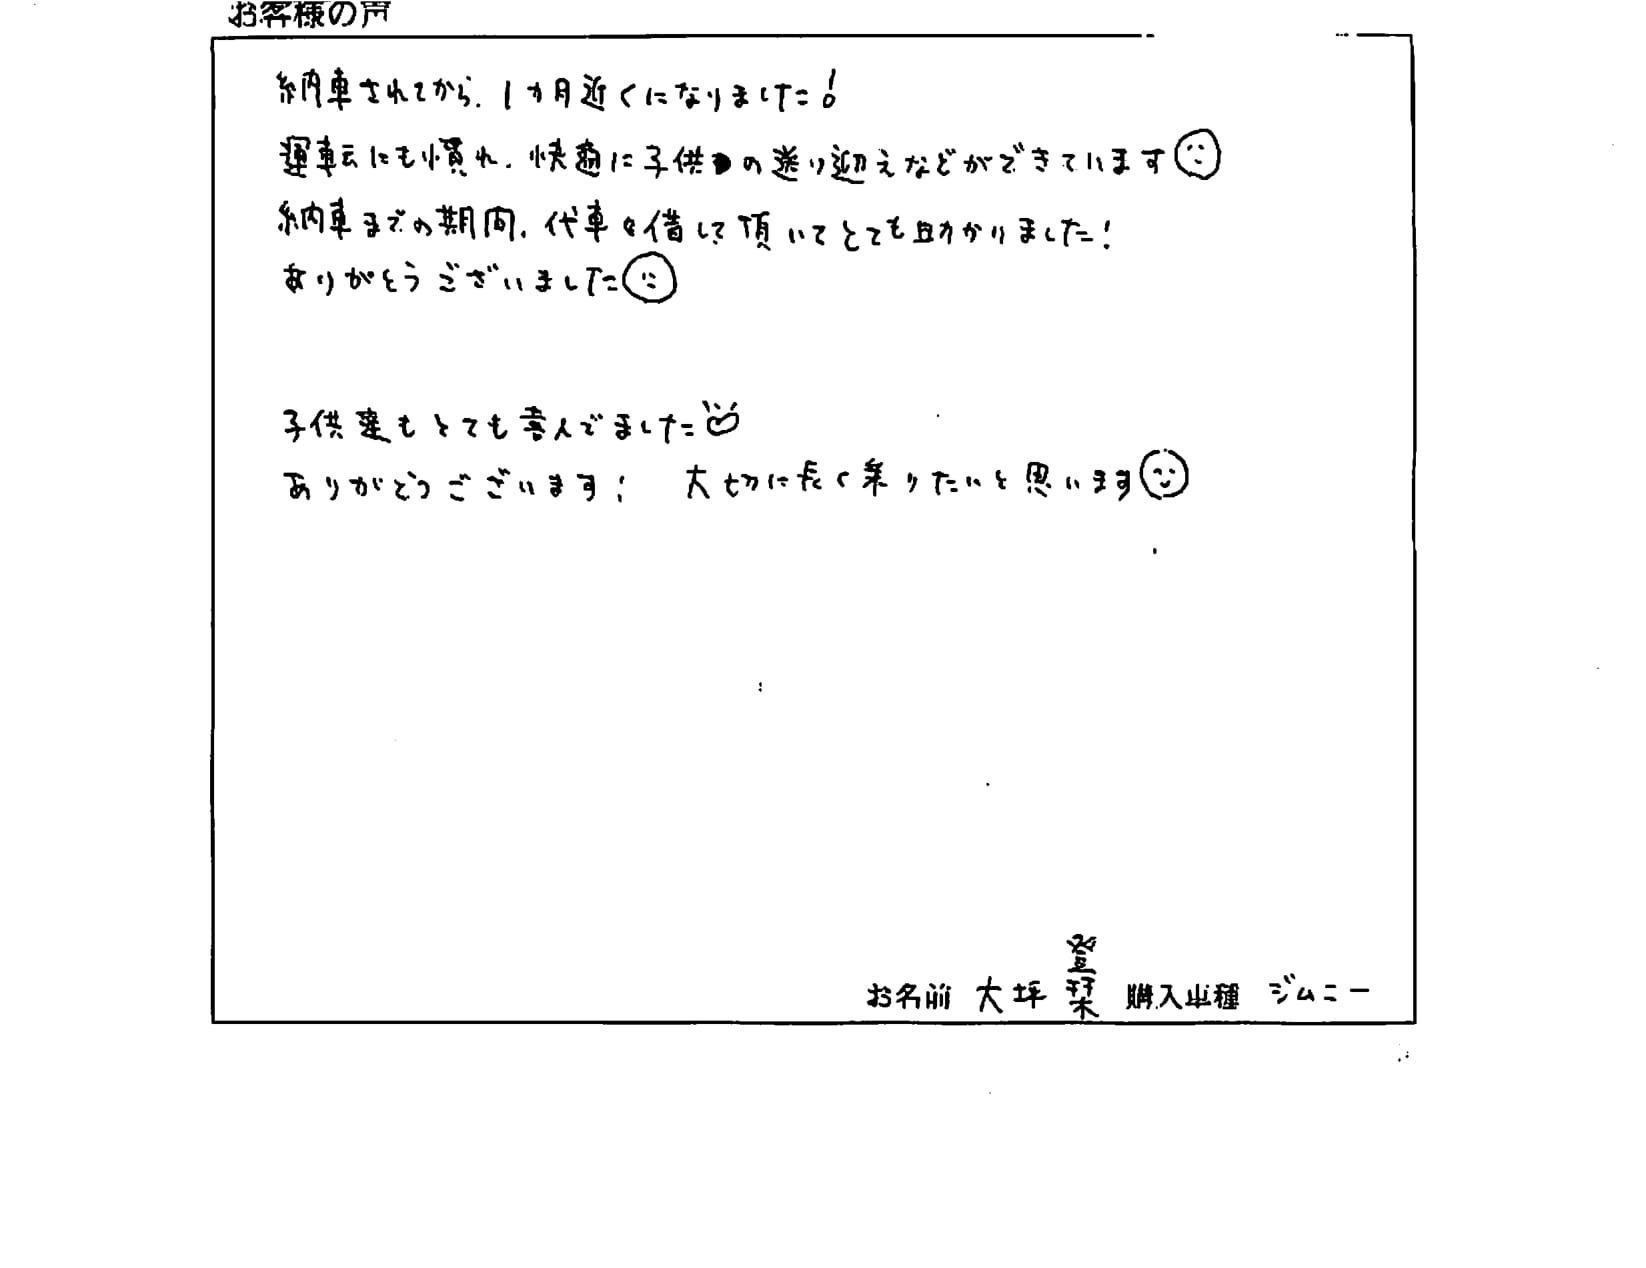 お客様の声
納車されてから、1ヵ月近くになりました!
運転にも慣れ、快適に子供の送り迎えなどができています
納車までの期間、代車を借して頂いてとても助かりました!
ありがとうございました
子供達もとても喜んでました
ありがとうございます! 大切に長く乗りたいと思います
お名前 大坪 登栞 購入車種 ジムニー